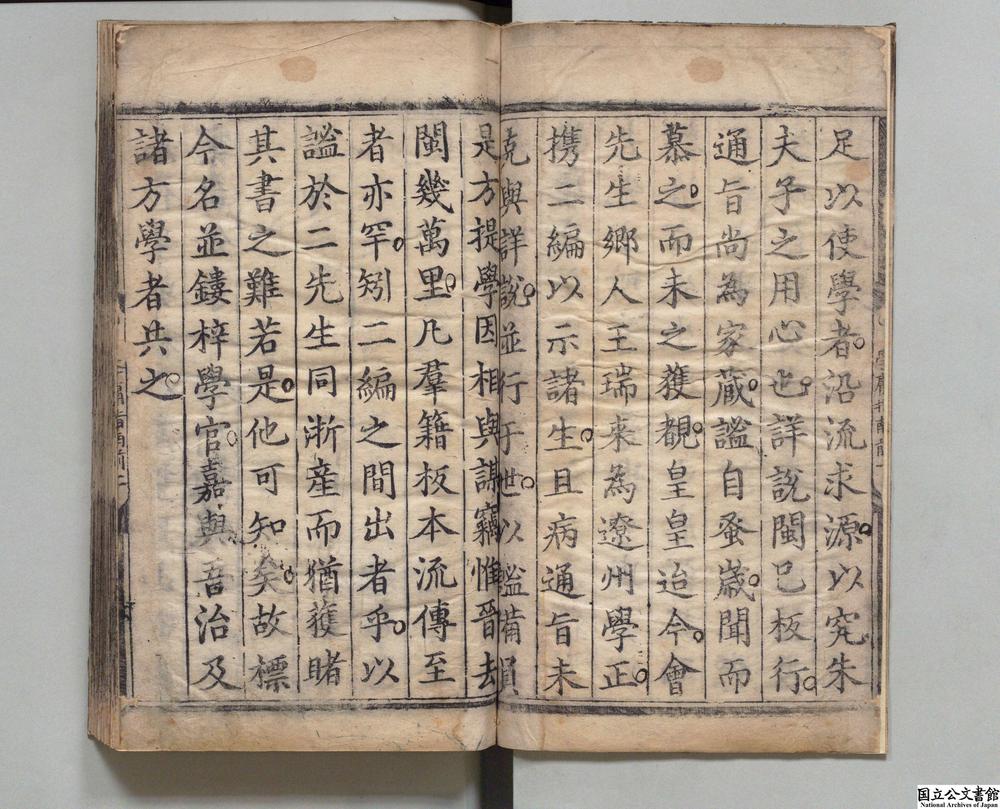 足以使學者沿流求源以究朱
夫子之用心也詳說閩已板行
通旨尚為家藏謐自蚤歲聞而
慕之而未之獲覩皇皇迨今會
先生鄉人王瑞來為遼州學正
携二編以示諸生且病通旨未
克與詳說並行于世以謐備員
是方提學因相與謀竊惟晉去
閩幾萬里凡羣籍板本流傳至
者亦罕矧二編之間出者乎以
謐於二先生同浙産而猶獲睹
其書之難若是他可知矣故標
今名並鏤梓學官嘉與吾治及
諸方學者共之
国立公文書館
National Archives of Japan